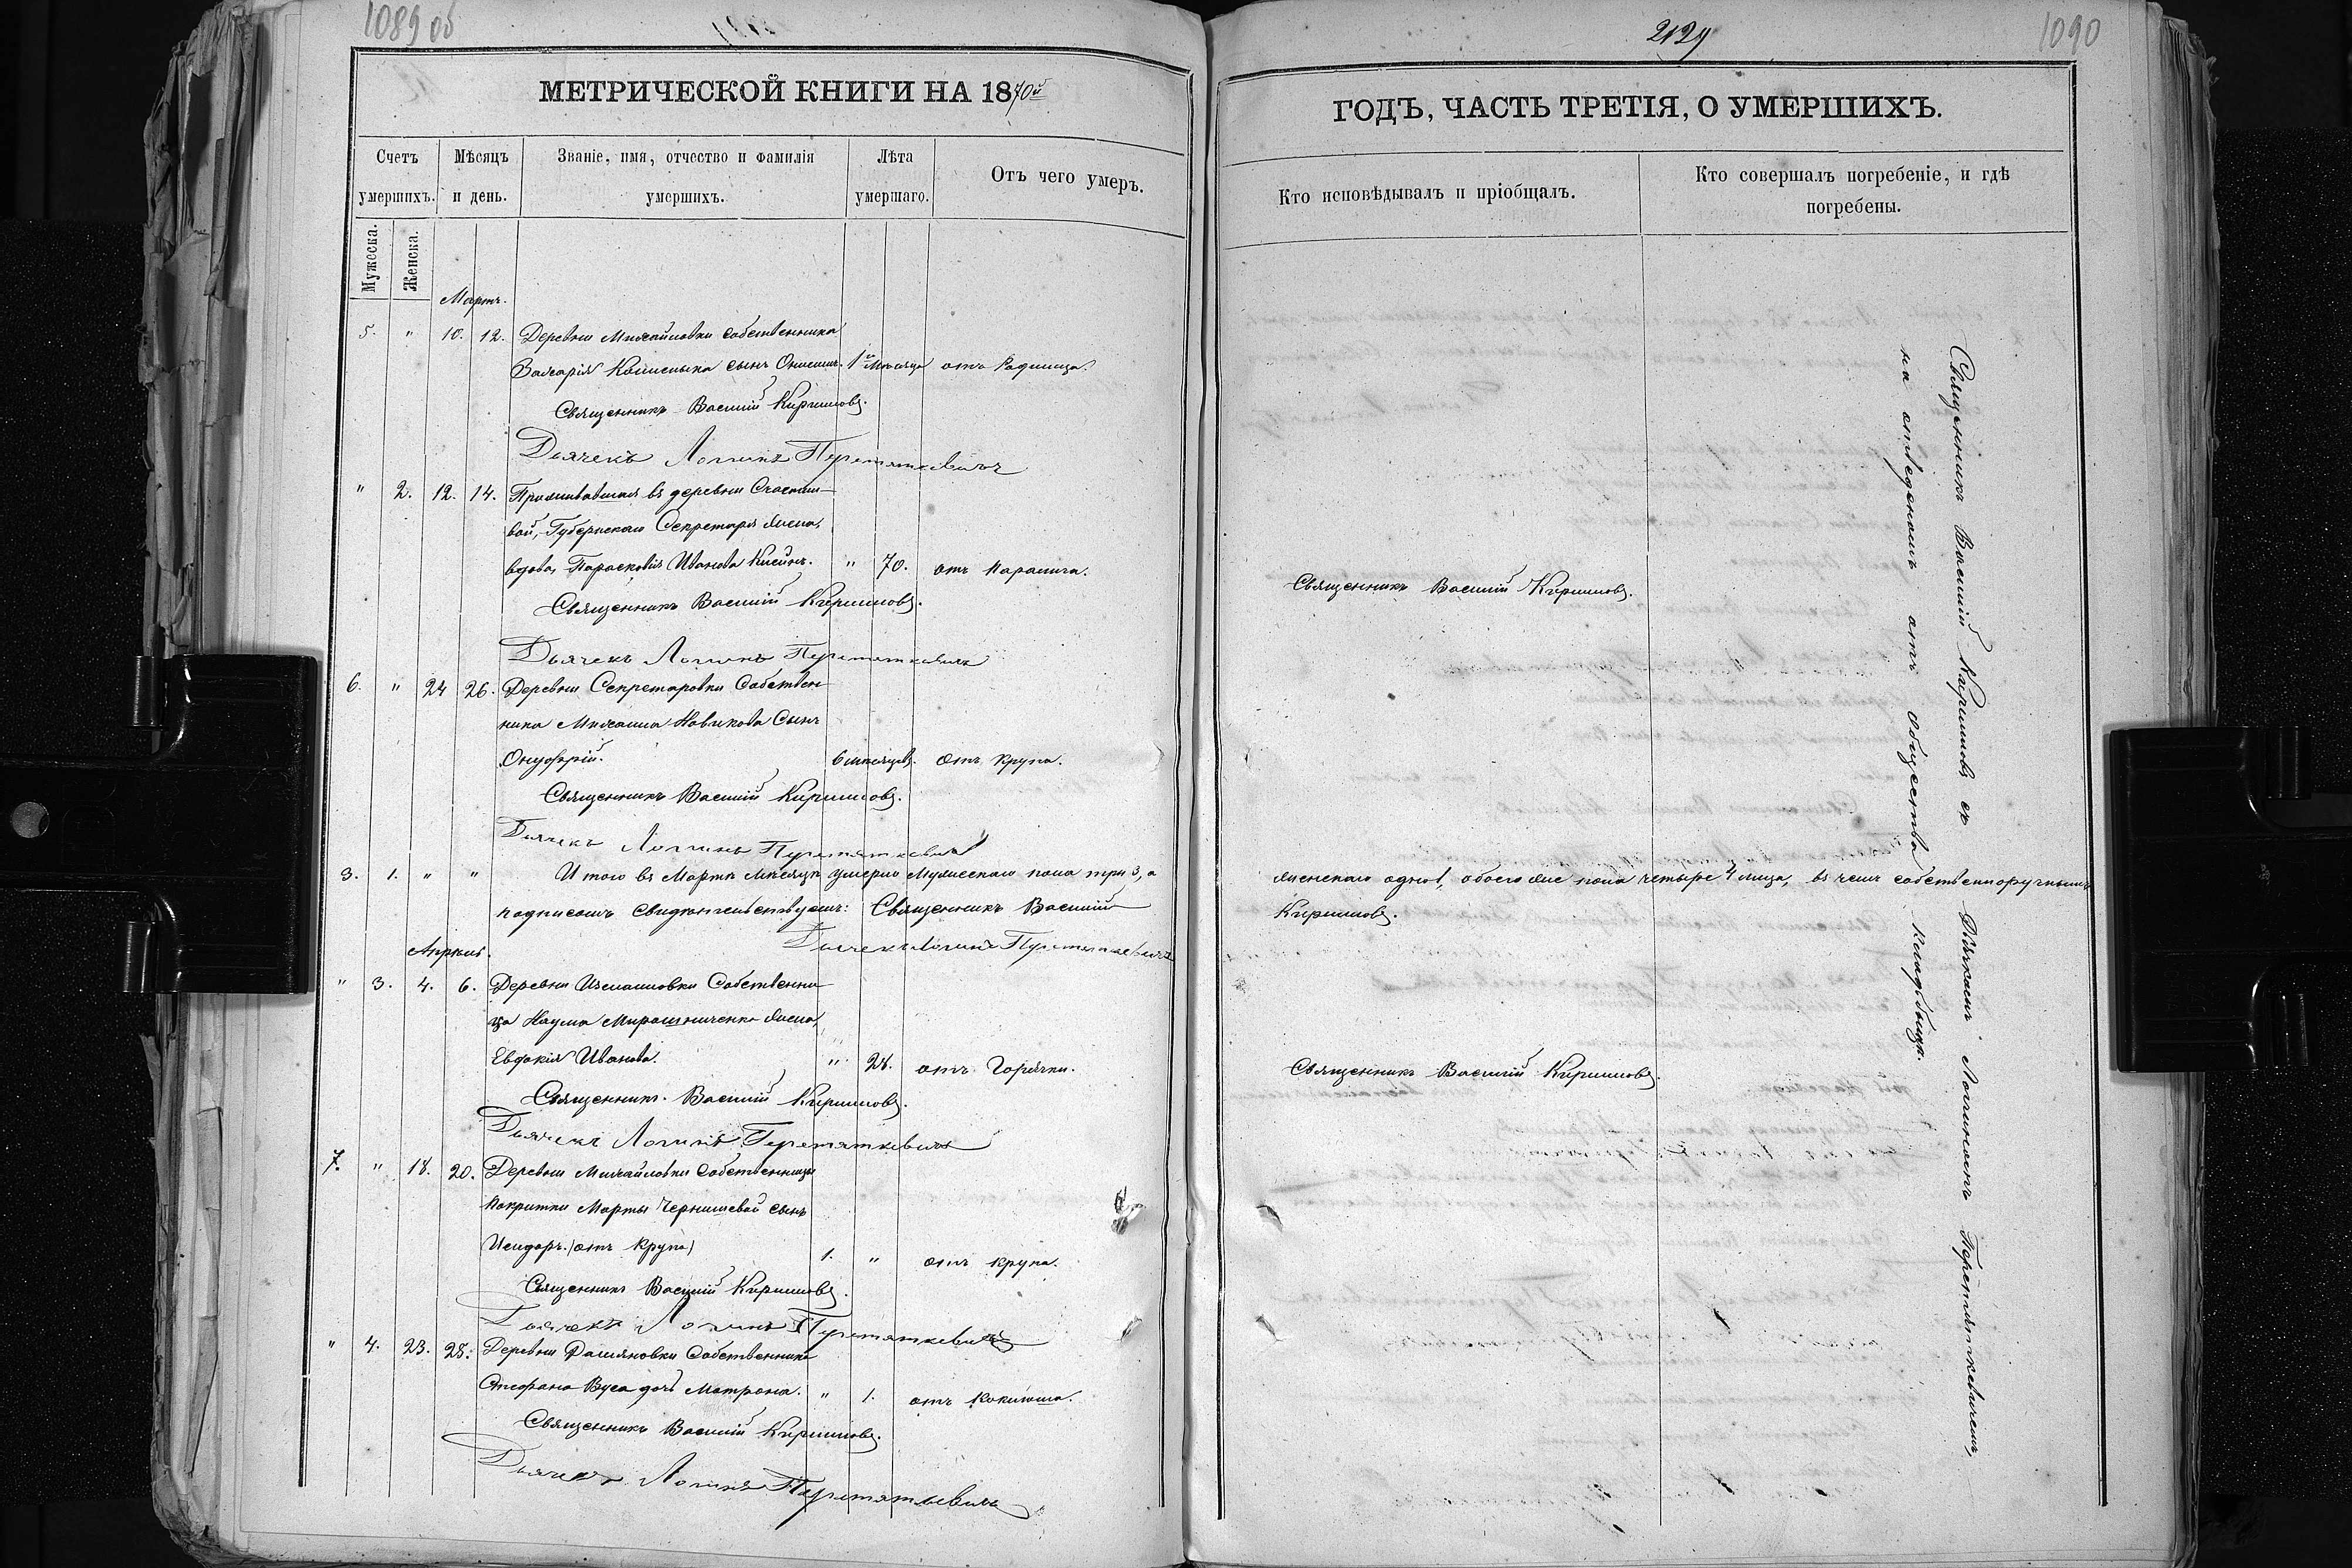 1089 об
МЕТРИЧЕСКОЙ КНИГИ НА 1870й
Счетъ умершихъ.
Мѣсяцъ и день.
Званіе, имя, отчество и фамилія умершихъ.
Лѣта умершаго.
Отъ чего умеръ.
Мужеска.
Женска.
Мартъ.
5. " 10. 12. Деревни Михайловки собственника
Захарія сынъ 1й мѣсяца отъ Родимца.
Священникъ Василій Кириловъ.
Дьячекъ Логинъ Перетяткевичъ
" 2. 12. 14. Проживавшая въ деревни Счастли-
вой, Губернскаго Секретаря жена,
вдова, Парасковія Иванова " 70. отъ паралича.
Священникъ Василій Кириловъ.
Дьячекъ Логинъ Перетяткевичъ
6. " 24 26. Деревни Секретаровки Собствен-
ника Михаила Новикова Сынъ
Онуфрій. 6 мѣсяцев. отъ крупа.
Священникъ Василій Кириловъ.
Дьячекъ Логинъ Перетяткевичъ
3. 1. " " Итого въ Мартѣ мѣсяцѣ умерло Мужескаго пола три 3, а
подписомъ свидѣтельствуемъ: Священникъ Василій
Дьячекъ Логинъ Перетяткевичъ
Апрѣль.
" 3. 4. 6. Деревни Измаиловки Собственни-
ка Наума Мирошниченка жена,
Евдокія Иванова. " 28. отъ Горячки.
Священникъ Василій Кириловъ.
Дьячекъ Логинъ Перетяткевичъ
7. " 18. 20. Деревни Михайловки Собственницы
покритки Марты Чернишевой сынъ
Исидоръ. (отъ крупа) 1. " отъ крупа.
Священникъ Василій Кириловъ.
Дьячекъ Логинъ Перетяткевичъ
" 4. 23. 28. Деревни Собственника
Стефана Вуса дочь Матрона. " 1. отъ коклюша.
Священникъ Василій Кириловъ.
Дьячекъ Логинъ Перетяткевичъ
2129
1090
ГОДЪ, ЧАСТЬ ТРЕТІЯ, О УМЕРШИХЪ.
Кто исповѣдывалъ и пріобщалъ.
Кто совершалъ погребеніе, и гдѣ
погребены.
Священникъ Василій Кириловъ.
женскаго одно 1, обоего же пола четыре 4 лица, въ чемъ собственноручнымъ
Кириловъ.
Священникъ Василій Кириловъ.
Священникъ Василій Кириловъ съ Дьячкомъ Логиномъ Перетяткевичемъ,
на отведенномъ отъ общества кладбищѣ.